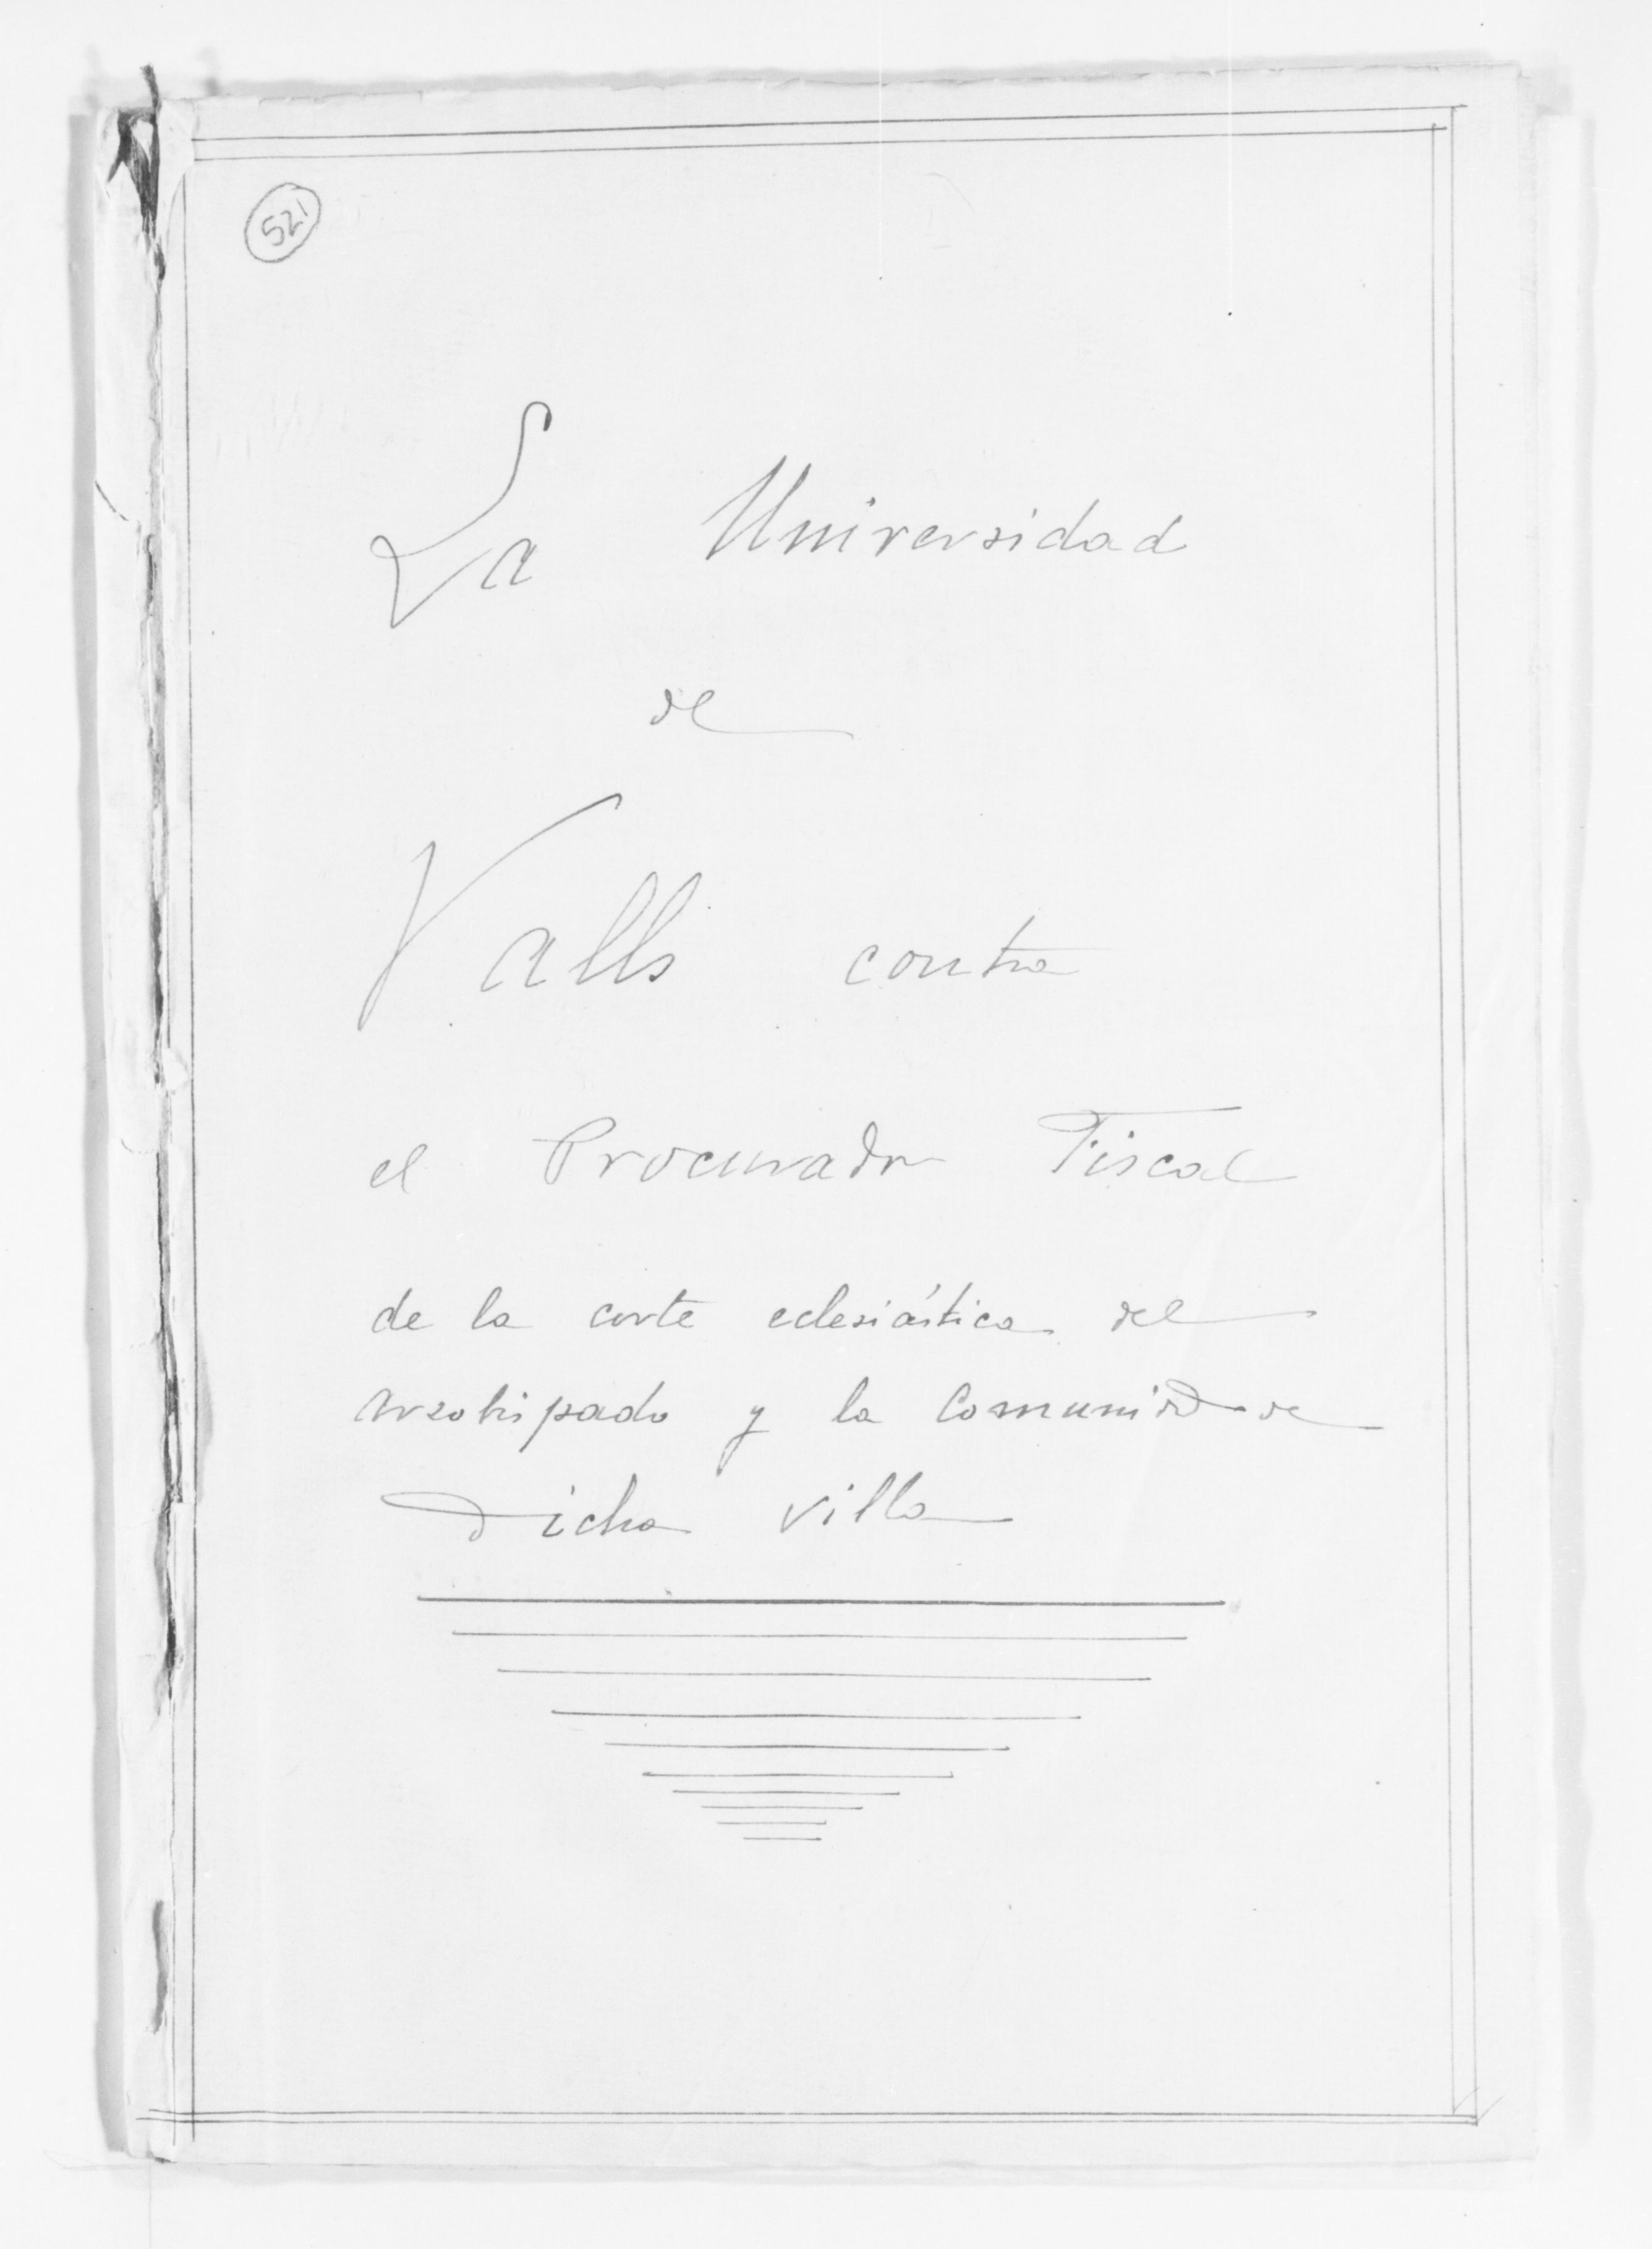 521
La Universidad
de
Valls contra
el Procurador Fiscal
de la corte eclesiástica del
arzobispado y la Comunidad de
dicha villa